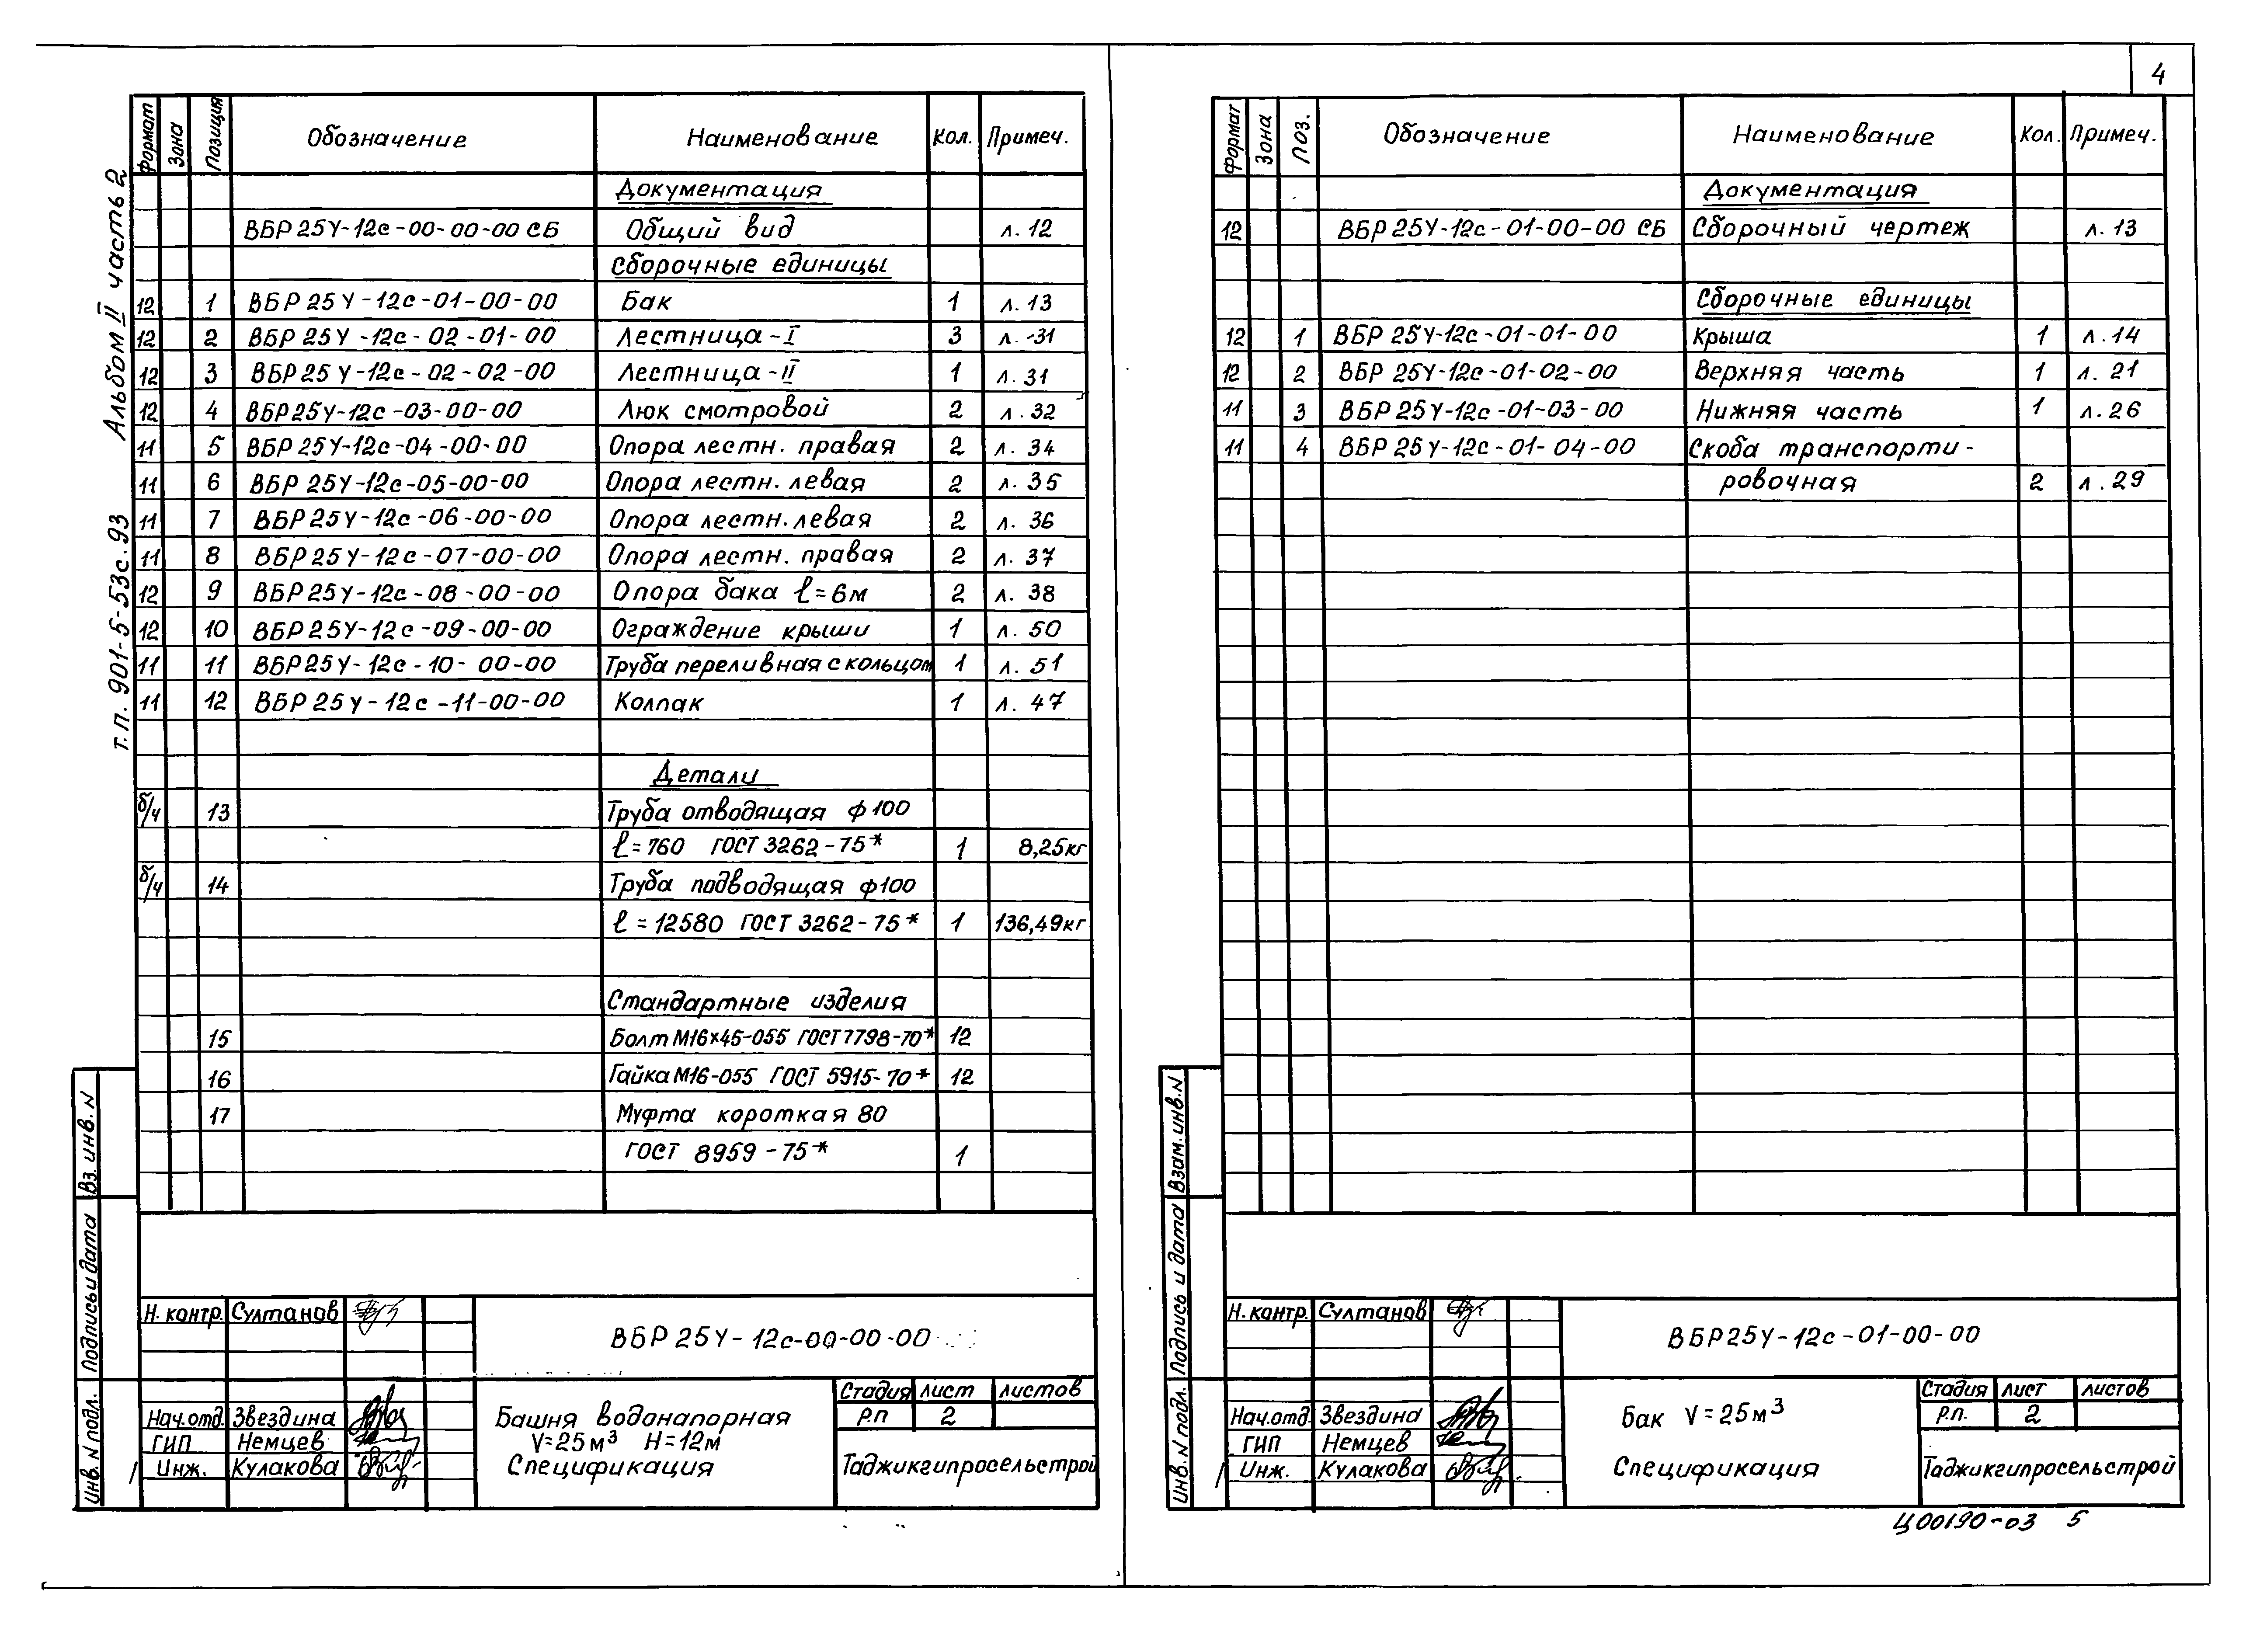 4
т.п. 901-5-53с.93 Альбом II часть 2
Формат Зона Позиция Обозначение Наименование Кол. Примеч.
Документация
ВБР 25У-12с-00-00-00 СБ Общий вид л. 12
Сборочные единицы
12 1 ВБР 25У-12с-01-00-00 Бак 1 л. 13
12 2 ВБР 25У-12с-02-01-00 Лестница-I 3 л.-31
12 3 ВБР 25У-12с-02-02-00 Лестница-II 1 л. 31
12 4 ВБР25У-12с-03-00-00 Люк смотровой 2 л. 32
11 5 ВБР 25У-12с-04-00-00 Опора лестн. правая 2 л. 34
11 6 ВБР 25У-12с-05-00-00 Опора лестн. левая 2 л. 35
11 7 ВБР 25У-12с-06-00-00 Опора лестн. левая 2 л. 36
11 8 ВБР 25У-12с-07-00-00 Опора лестн. правая 2 л. 37
12 9 ВБР25У-12с-08-00-00 Опора бака ℓ=6м 2 л. 38
12 10 ВБР25У-12с-09-00-00 Ограждение крыши 1 л. 50
11 11 ВБР25У-12с-10-00-00 Труба переливная с кольцом 1 л. 51
11 12 ВБР 25У-12с-11-00-00 Колпак 1 л. 47
Детали
б/ч 13 Труба отводящая ф100
ℓ=760 ГОСТ 3262-75* 1 8,25кг
б/ч 14 Труба подводящая ф100
ℓ=12580 ГОСТ 3262-75* 1 136,49кг
Стандартные изделия
15 Болт М16х45-055 ГОСТ7798-70* 12
16 Гайка М16-055 ГОСТ 5915-70* 12
17 Муфта короткая 80
ГОСТ 8959-75* 1
Инв. N подл. Подпись и дата Вз. инв. N
Н. контр. Султанов
ВБР 25У-12с-00-00-00
Нач.отд. Звездина
ГИП Немцев
Инж. Кулакова
Башня водонапорная
V=25м³ H=12м
Спецификация
Стадия лист листов
Р.п 2
Таджикгипросельстрой
Формат Зона Поз. Обозначение Наименование Кол. Примеч.
Документация
12 ВБР 25У-12с-01-00-00 СБ Сборочный чертеж л. 13
Сборочные единицы
12 1 ВБР 25У-12с-01-01-00 Крыша 1 л. 14
12 2 ВБР 25У-12с-01-02-00 Верхняя часть 1 л. 21
11 3 ВБР 25У-12с-01-03-00 Нижняя часть 1 л. 26
11 4 ВБР 25У-12с-01-04-00 Скоба транспорти-
ровочная 2 л. 29
Инв. N подл. Подпись и дата Взам. инв. N
Н. контр. Султанов
ВБР25У-12с-01-00-00
Нач.отд. Звездина
ГИП Немцев
Инж. Кулакова
Бак V=25м³
Спецификация
Стадия лист листов
Р.п. 2
Таджикгипросельстрой
Ц00190-03 5